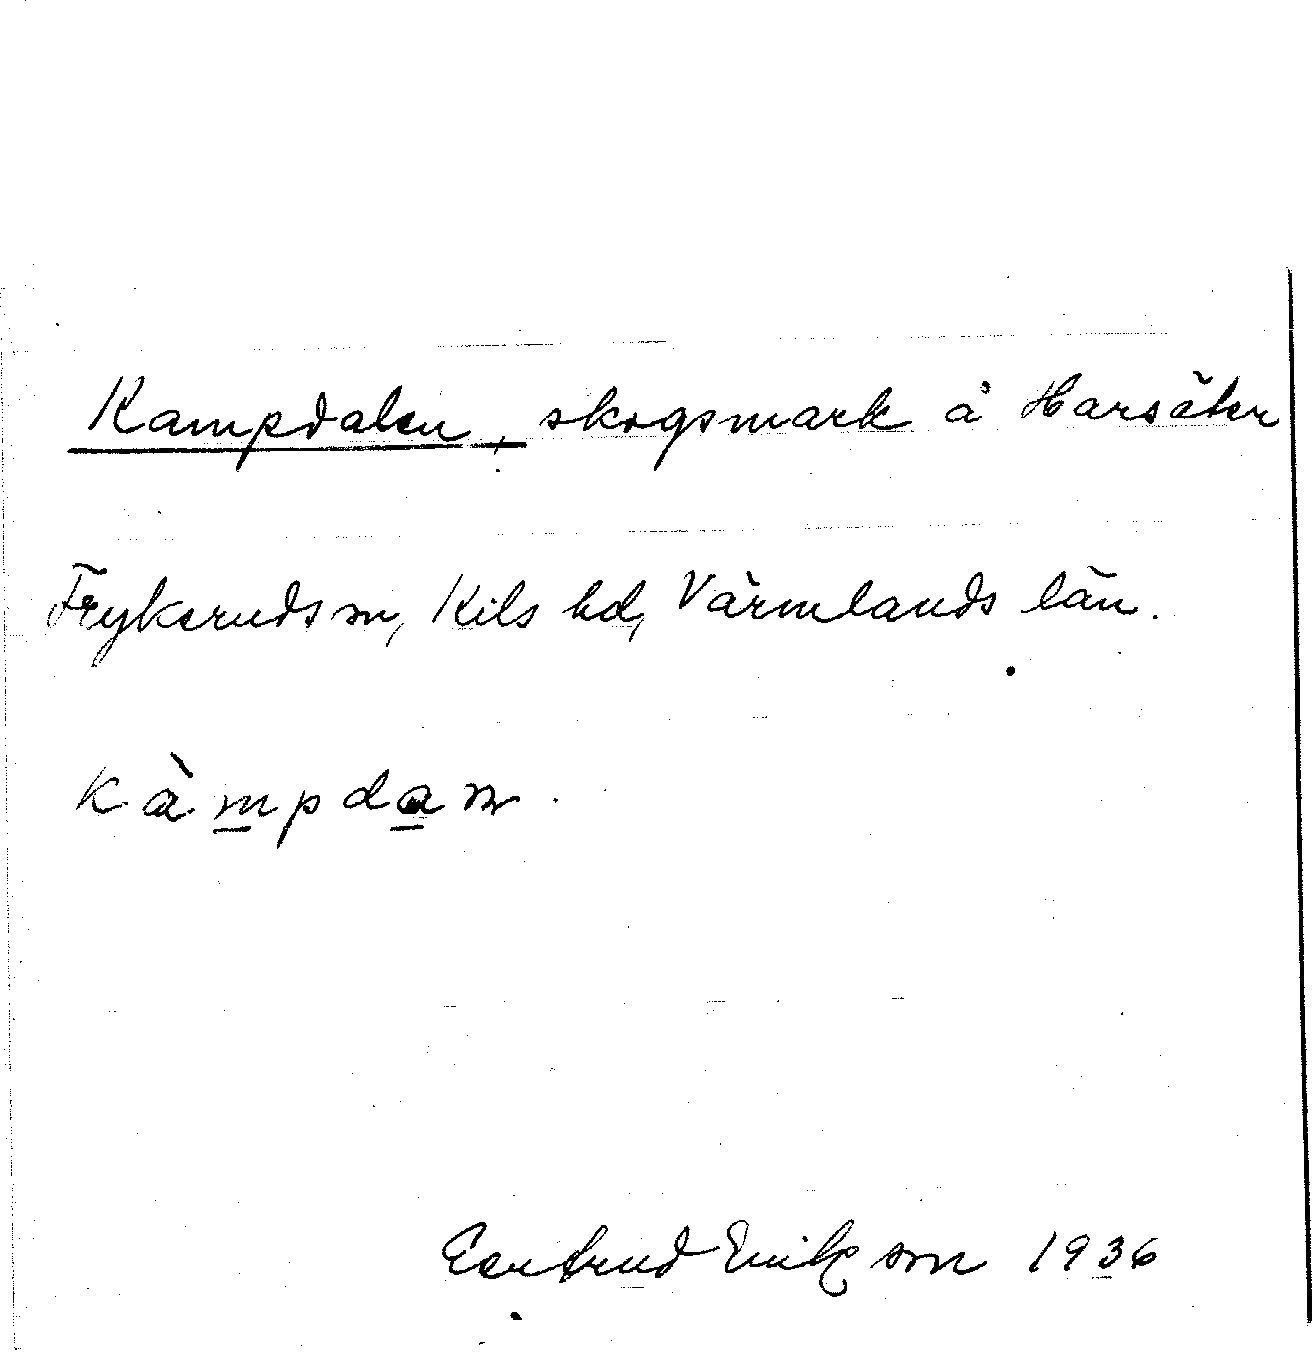 Kampdalen, skogsmark å Harsäter
Frykeruds sn, Kils hd, Värmlands län.
kàmpdan.
Gertrud Erikson 1936